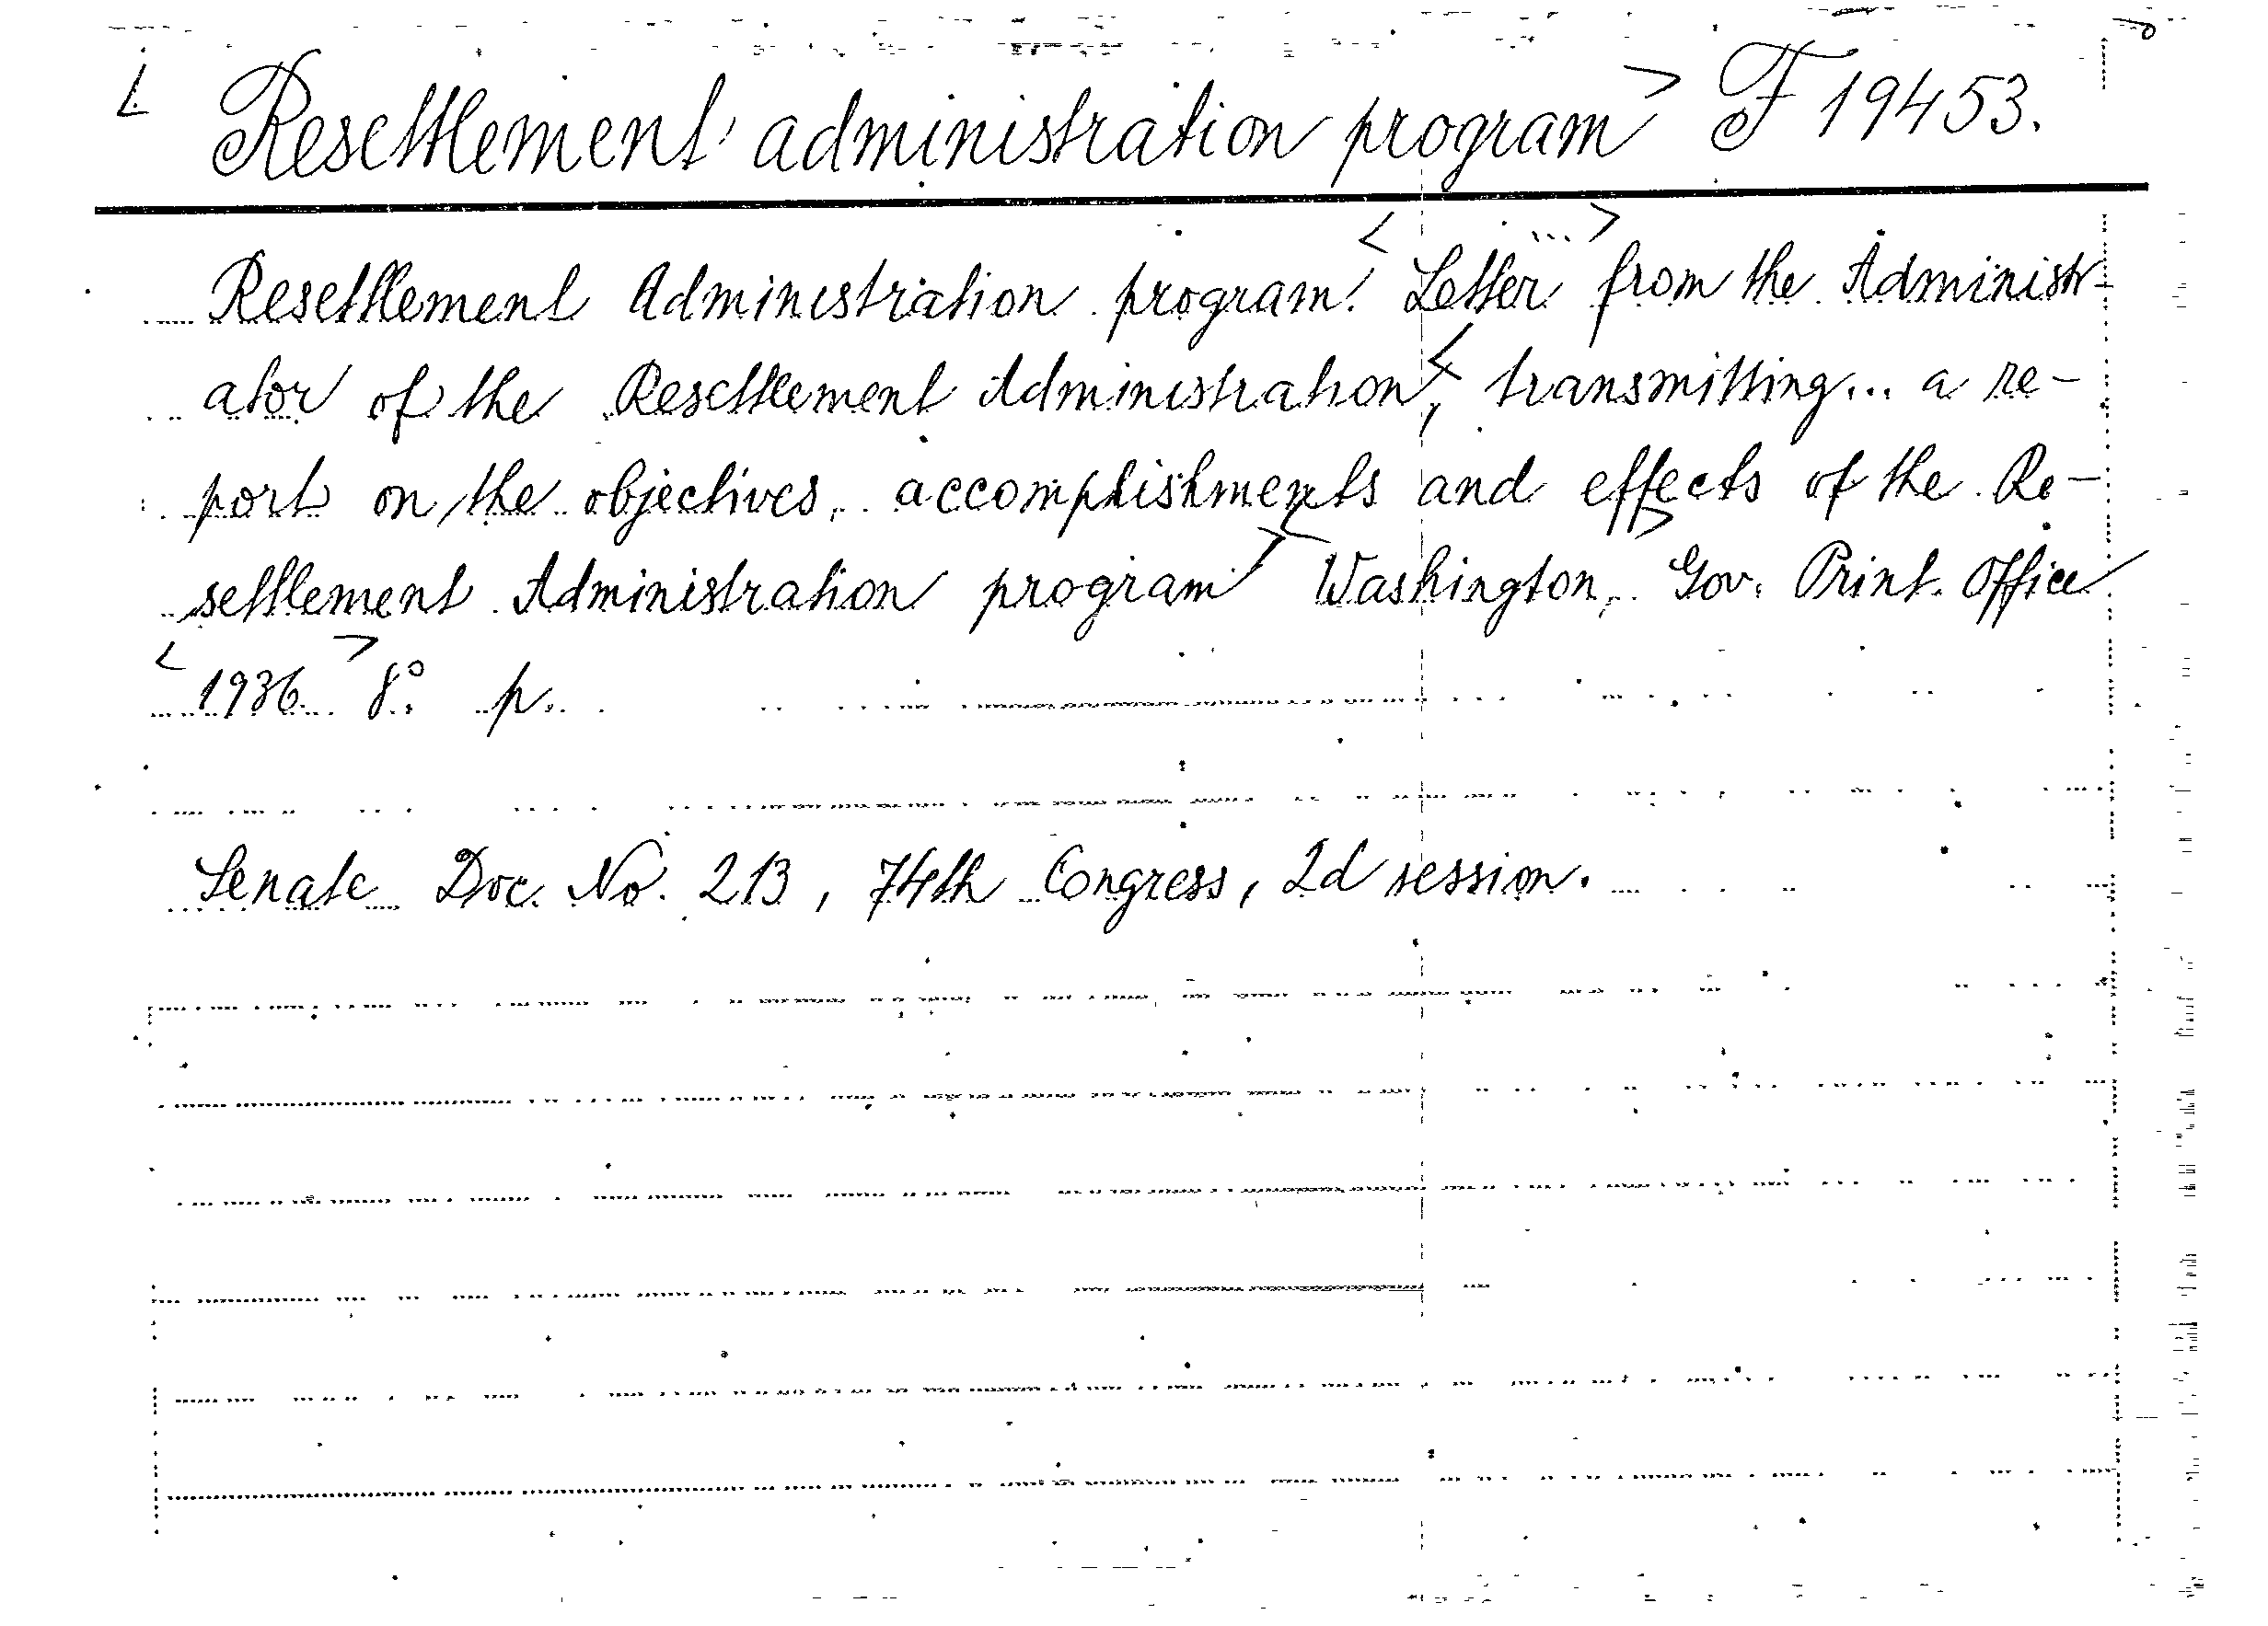 < Resettlement administration program > F 19453.
Resettlement Administration program. < Letter ...> from the Administr-
ator of the Resettlement Administration, < transmitting... a re-
port on the objectives, accomplishments and effects of the Re-
settlement Administration program > < Washington, > Gov. Print. Office
< 1936 > 8° p.
Senate Doc. No. 213, 74th Congress, 2d session.